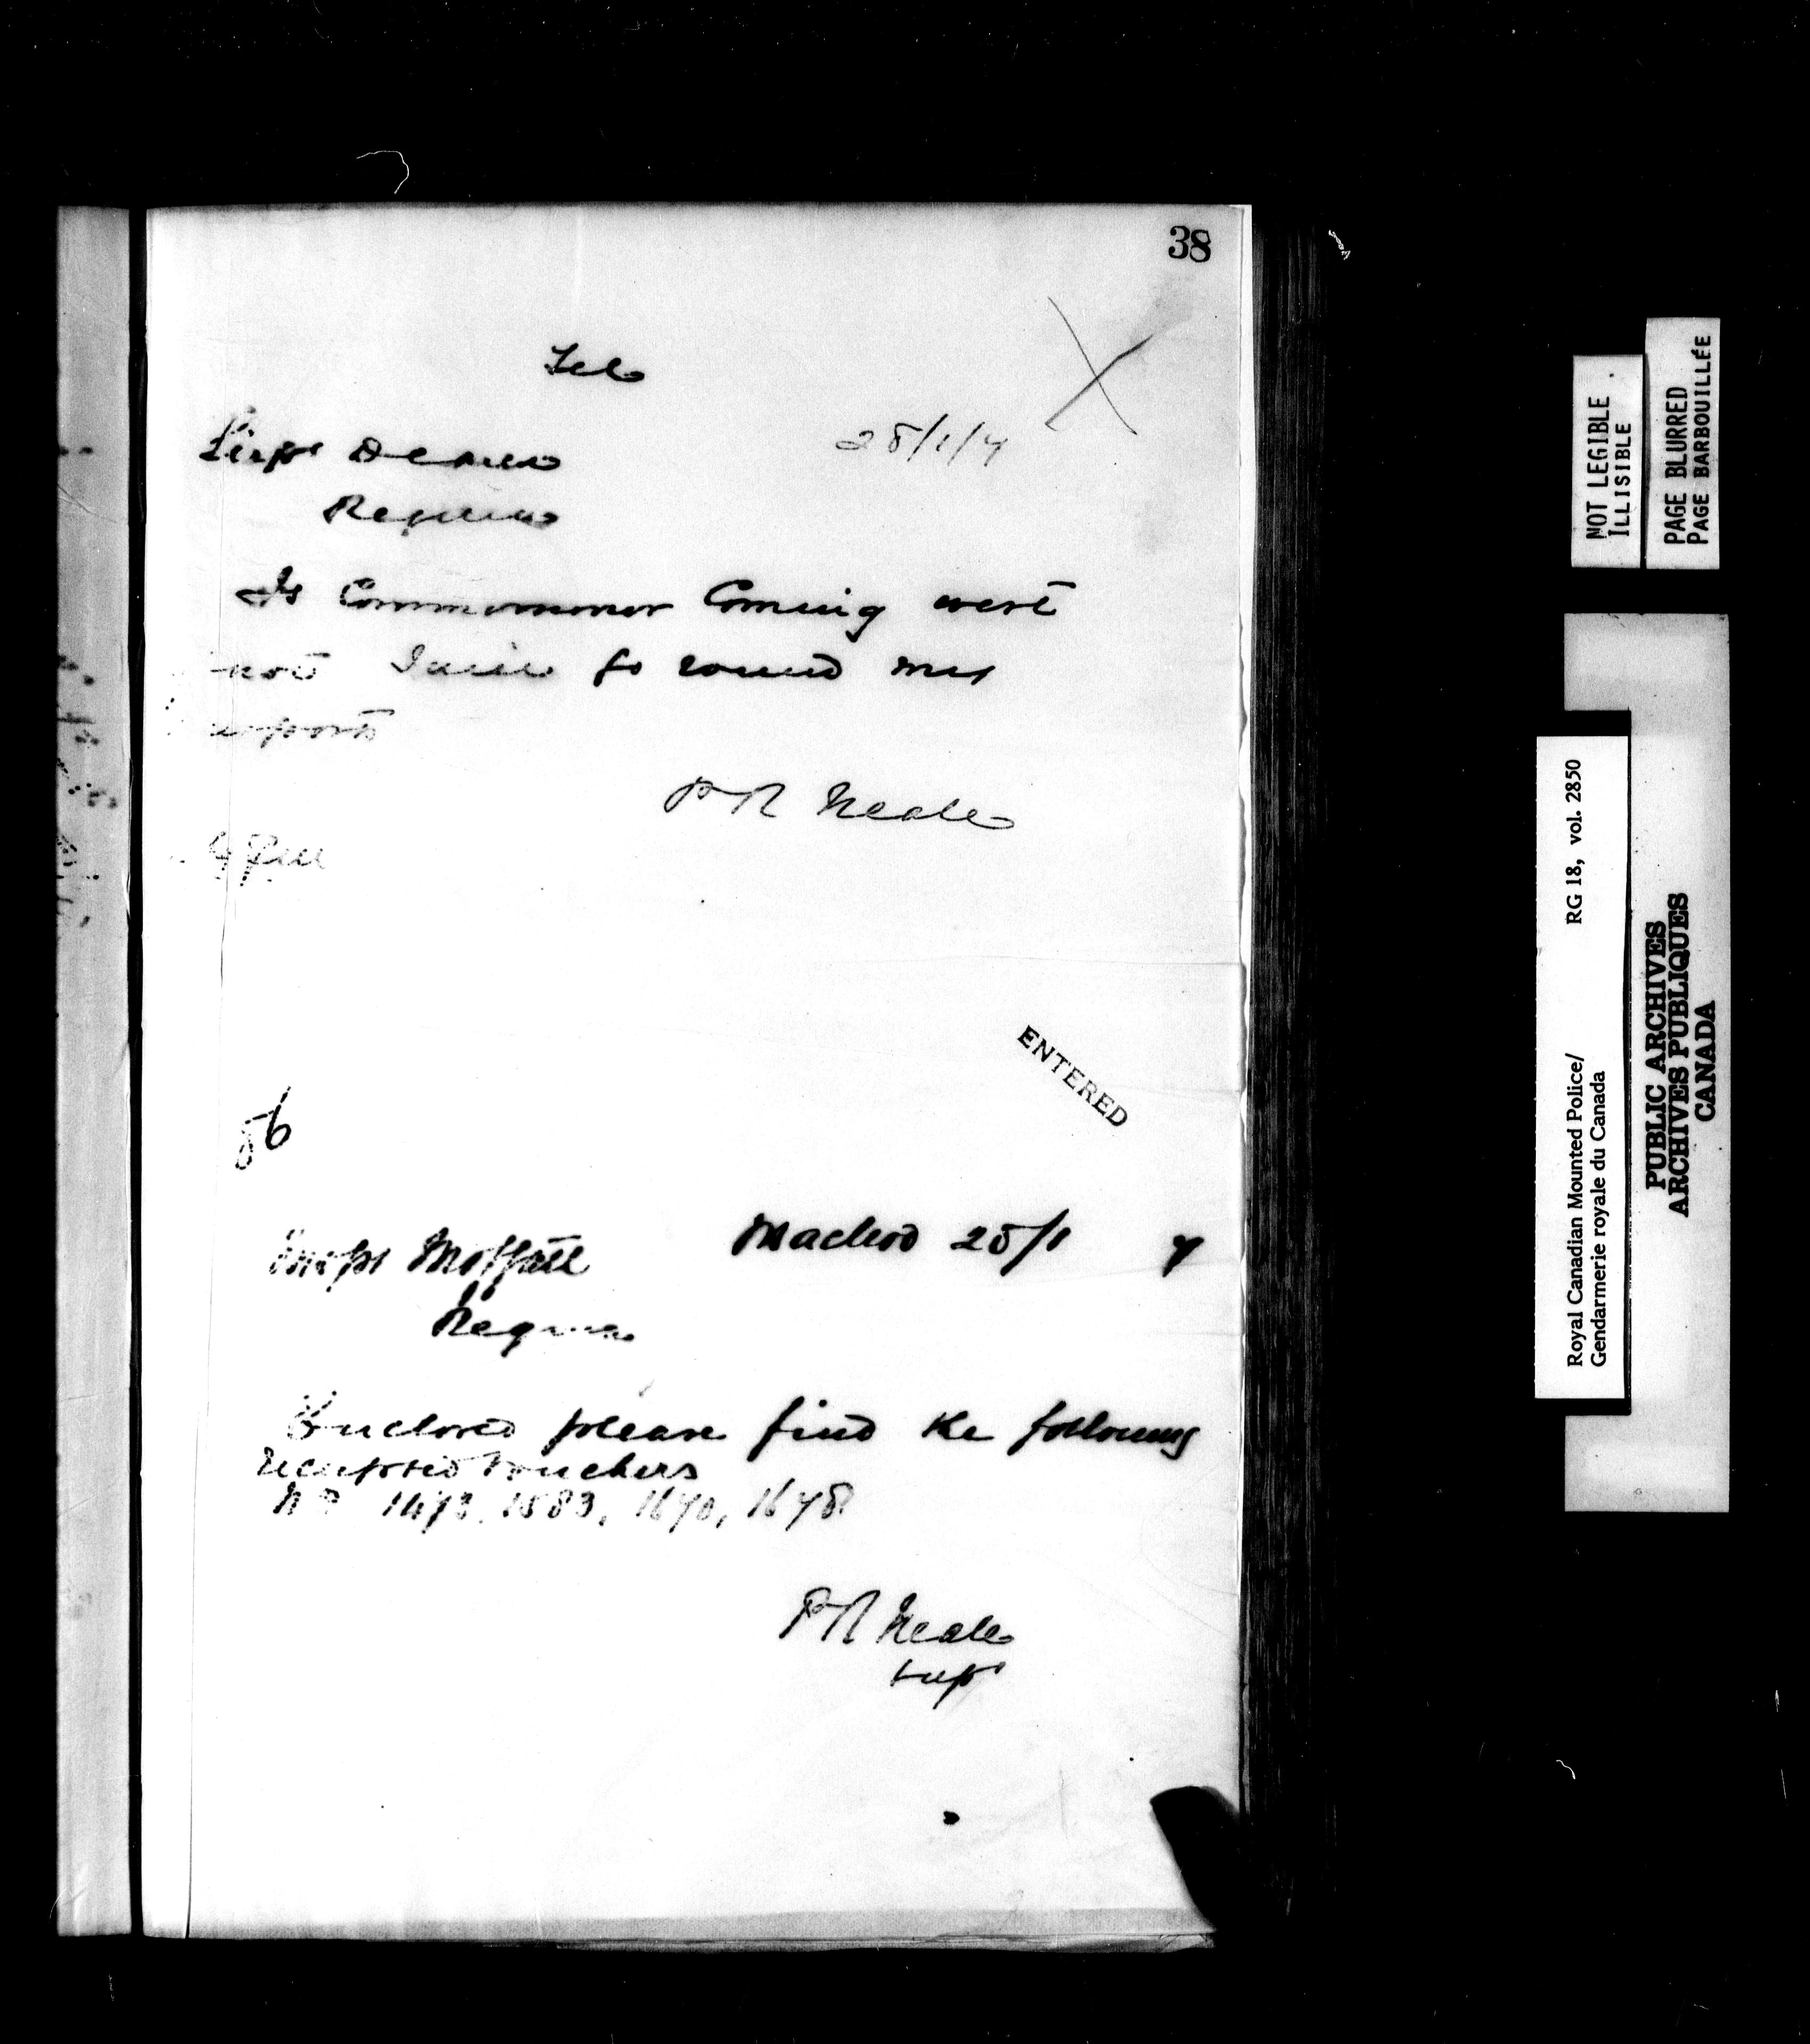 38
Tel
Supt Deane
28/1/7
Regina
Is Commissioner Coming west
not I will go round my
outposts
P R Neale
86
ENTERED
Supt Moffatt
Macleod 28/1 7
Regina
Enclosed please find the following
receipted vouchers
No 1583, 1670, 1678
P R Neale
Supt
NOT LEGIBLE
ILLISIBLE
PAGE BLURRED
PAGE BARBOUILLÉE
Royal Canadian Mounted Police/ RG 18, vol. 2850
Gendarmerie royale du Canada
PUBLIC ARCHIVES
ARCHIVES PUBLIQUES
CANADA